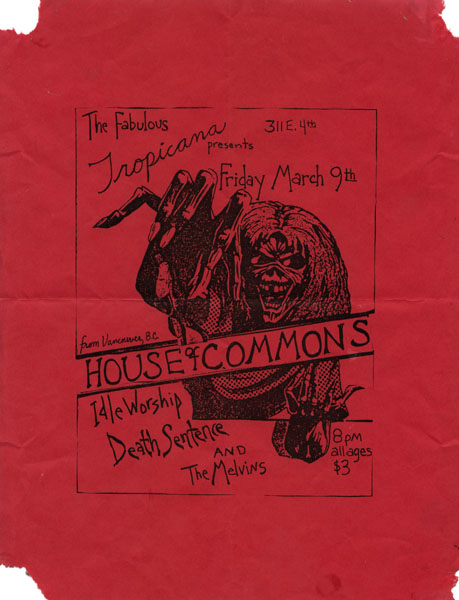 The Fabulous
311 E. 4th
Tropicana
presents
Friday March 9th
from Vancouver, B.C.
HOUSE of COMMONS
Idle Worship
Death Sentence
AND
The Melvins
8 pm
all ages
$3